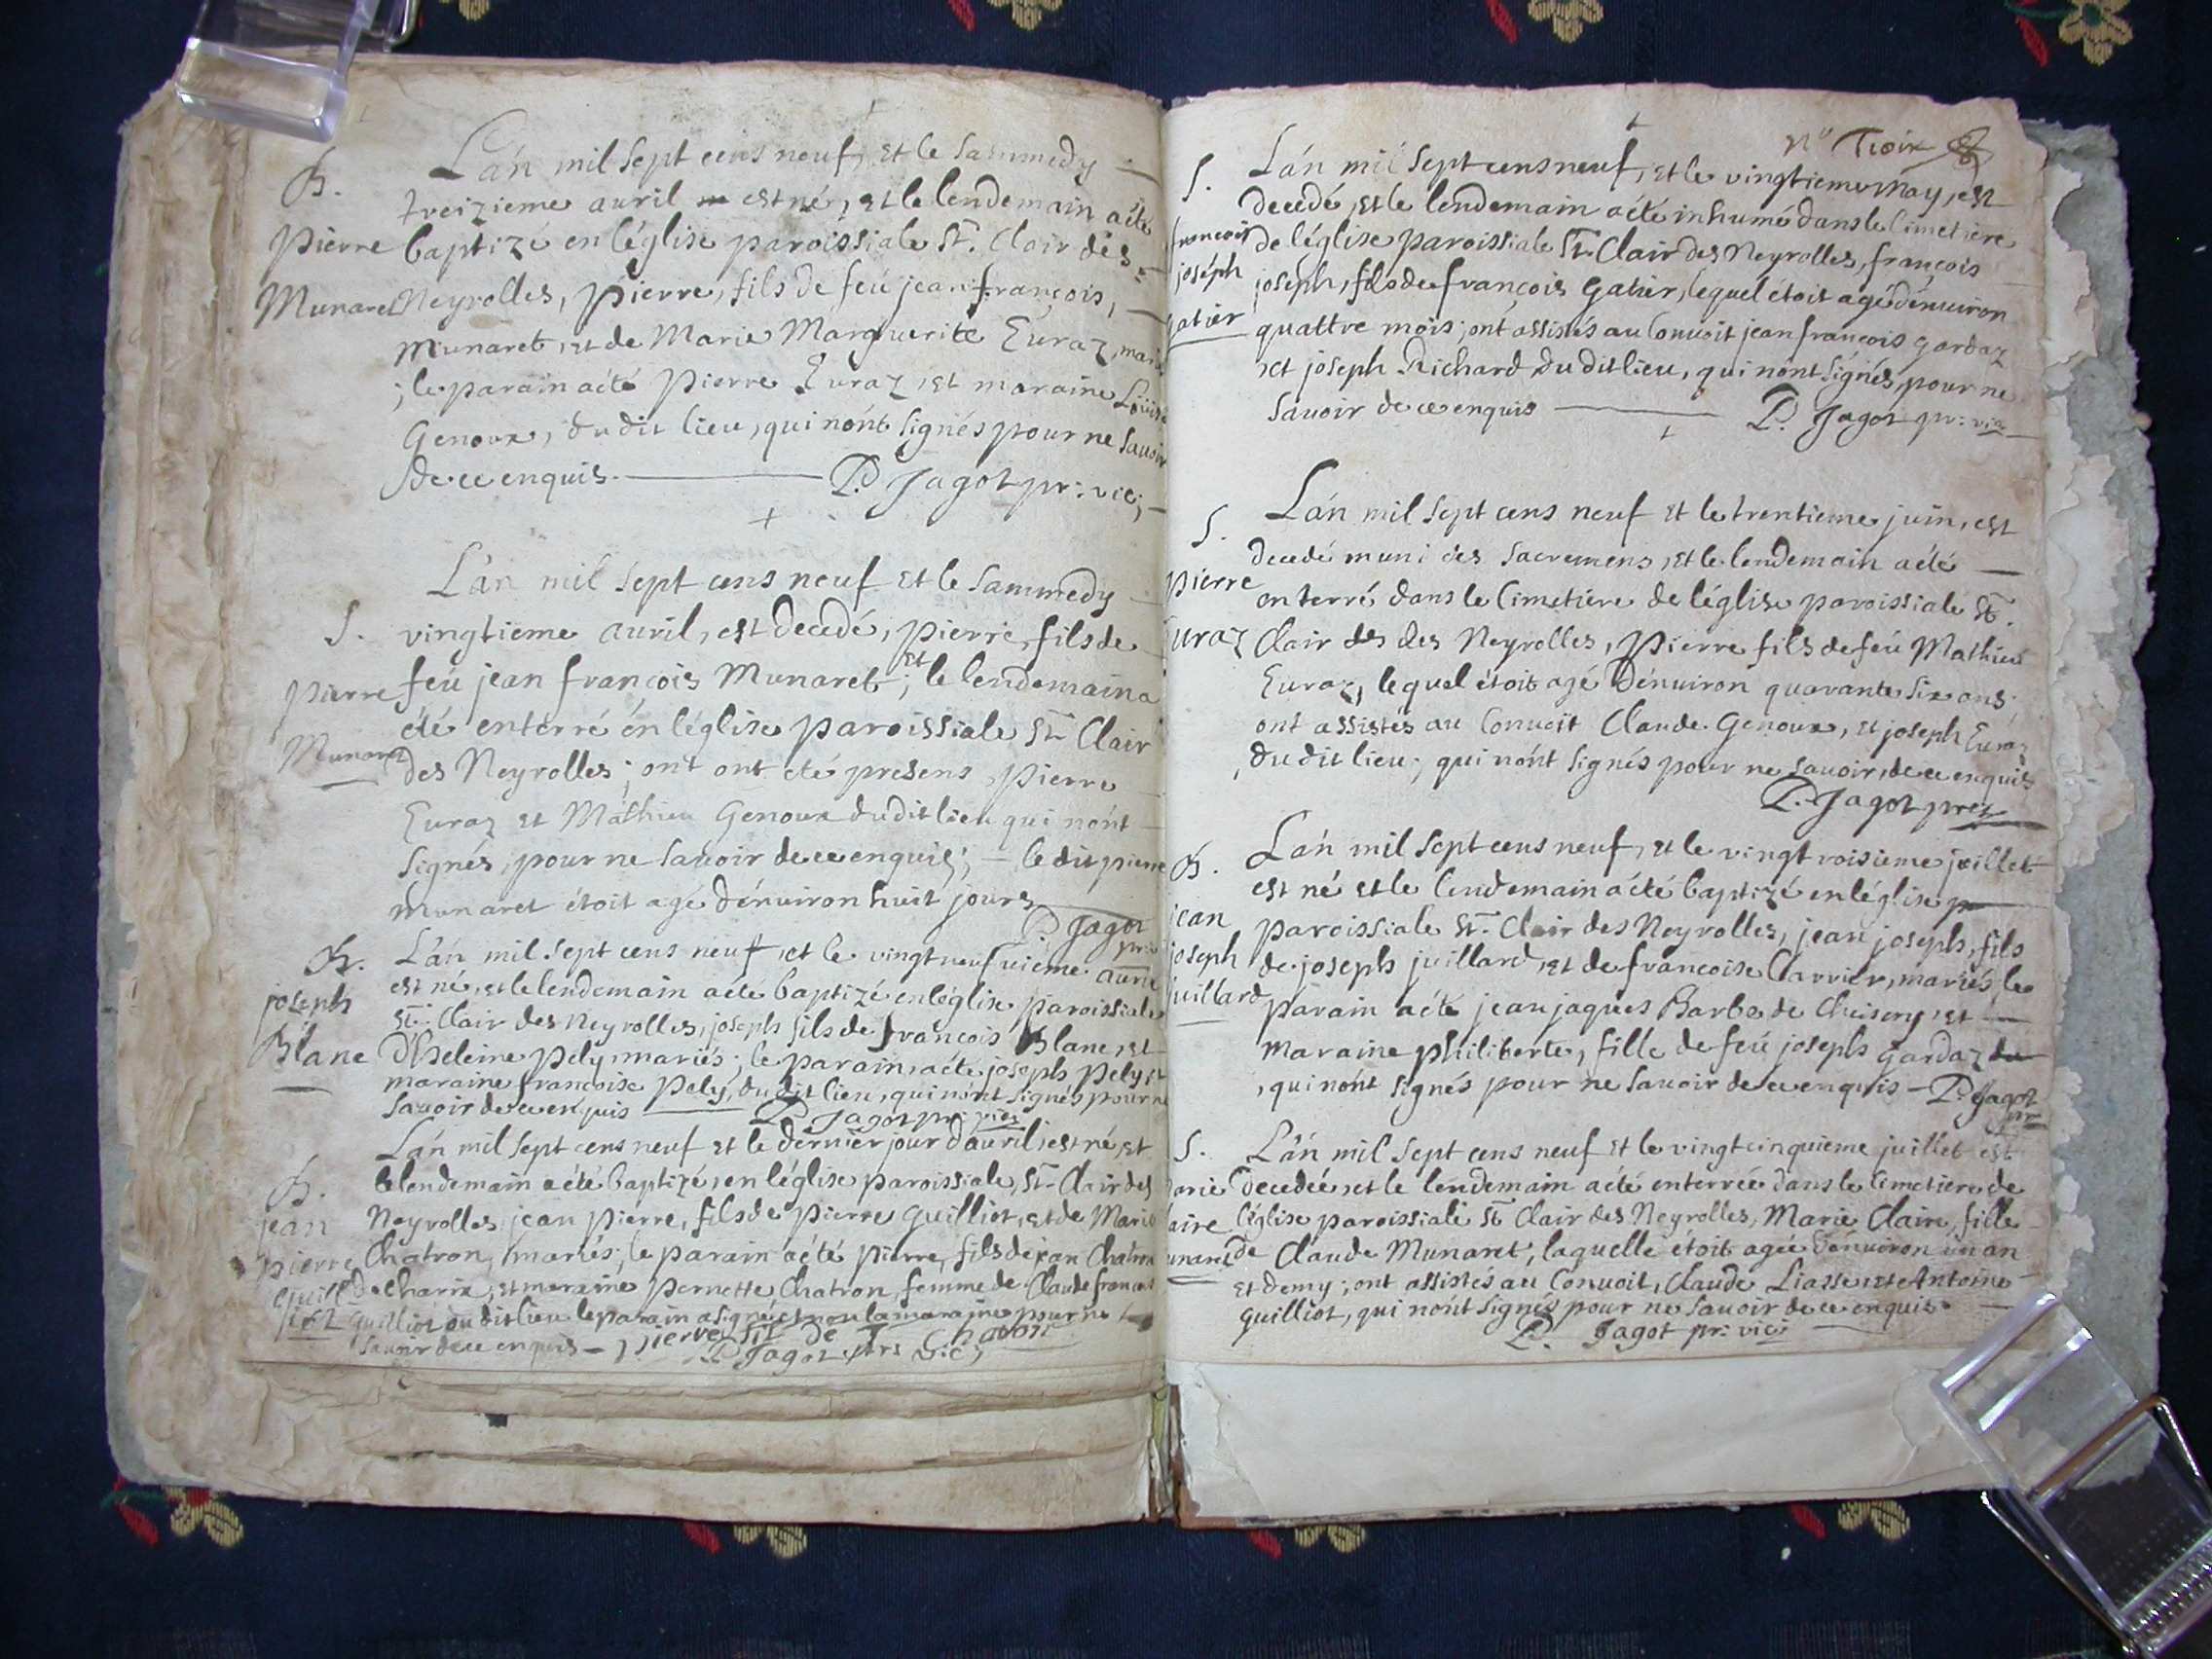 B.
Pierre
Munaret
L'an mil sept cens neuf, et le sammedy
treizieme auril est né, et le lendemain a été
baptizé en l'église paroissiale St. Clair des
Neyrolles, Pierre, fils de feu jean françois,
Munaret, et de Marie Marguerite Euraz, mariés
; le parain a été Pierre Euraz, et maraine Loüise
Genoux, du dit lieu, qui n'ont signés pour ne sauoir
de ce enquis. P. Jagot pr: vic;
S.
Pierre
Munaret
L'an mil sept cens neuf et le sammedy
vingtieme auril, est decedé, pierre, fils de
feu jean françois Munaret; et le lendemain a
été enterré en l'église paroissiale St Clair
des Neyrolles; ont ont eté presens, Pierre
Euraz et Mathieu Genoux du dit lieu qui n'ont
signés, pour ne sauoir de ce enquis; le dit pierre
munaret étoit agé d'enuiron huit jours
P. Jagot
pr:
B.
joseph
Blanc
L'an mil sept cens neuf, et le vingt neufuieme auril
est né, et le lendemain a été baptizé en l'église paroissiale
St. Clair des Neyrolles, joseph fils de françois Blanc, et
d'heleine Pely, mariés; le parain a été joseph Pely, et
maraine francoise Pely, du dit lieu, qui n'ont signés pour ne
sauoir de ce enquis P. Jagot pr: vic;
B.
jean
pierre
Guilliot
L'an mil sept cens neuf et le dernier jour d'auril, est né, et
le lendemain a été baptizé, en l'église paroissiale, St. Clair des
Neyrolles, jean pierre, fils de pierre guilliot, et de Marie
Chatron, mariés; le parain a été pierre, fils de jean Chatron
de Charix, et maraine Pernette Chatron, femme de Claude francois
guilliot du dit lieu le parain a signé et non la maraine pour ne
sauoir de ce enquis - pierre fit de J Chatron
P Jagot prs vic;
n° Troix
S.
francois
joseph
gatier
L'an mil sept cens neuf, et le vingtieme May, est
decedé, et le lendemain a été inhumé dans le Cimetiere
de l'église paroissiale St. Clair des Neyrolles, françois
joseph, fils de françois Gatier, lequel étoit agé d'enuiron
quattre mois; ont assistés au Conuoit jean françois gardaz
et joseph Richard du dit lieu, qui n'ont signés, pour ne
sauoir de ce enquis P. Jagot pr: vic
S.
Pierre
Euraz
L'an mil sept cens neuf et le trentieme juin, est
decedé muni des sacremens, et le lendemain a été
enterré dans le Cimetiere de l'église paroissiale St.
Clair des des Neyrolles, Pierre fils de feu Mathieu
Euraz, lequel étoit agé d'enuiron quarante six ans;
ont assistés au Conuoit Claude Genoux, et joseph Euraz
, du dit lieu; qui n'ont signés pour ne sauoir, de ce enquis
P. Jagot pr
B.
jean
joseph
juillard
L'an mil sept cens neuf, et le vingt roisieme juillet
est né et le lendemain a été baptizé en l'église
paroissiale St. Clair des Neyrolles, jean joseph, fils
de joseph juillard, et de francoise Carrier, mariés, le
parain a été jean jaques Barbe de Cheisery, et
maraine philiberte, fille de feu joseph gardaz du
, qui n'ont signés pour ne sauoir de ce enquis - P. Jagot
pr
S.
Marie
Claire
Munaret
L'an mil sept cens neuf et le vingt cinquieme juillet est
decedée, et le lendemain a été enterrée dans le Cimetiere de
l'église paroissiale St Clair des Neyrolles, Marie Claire, fille
de Claude Munaret, laquelle étoit agée d'enuiron un an
et demy; ont assistés au Conuoit, Claude Liasse et Antoine
Guilliot, qui n'ont signés pour ne sauoir de ce enquis.
P. Jagot pr: vic: